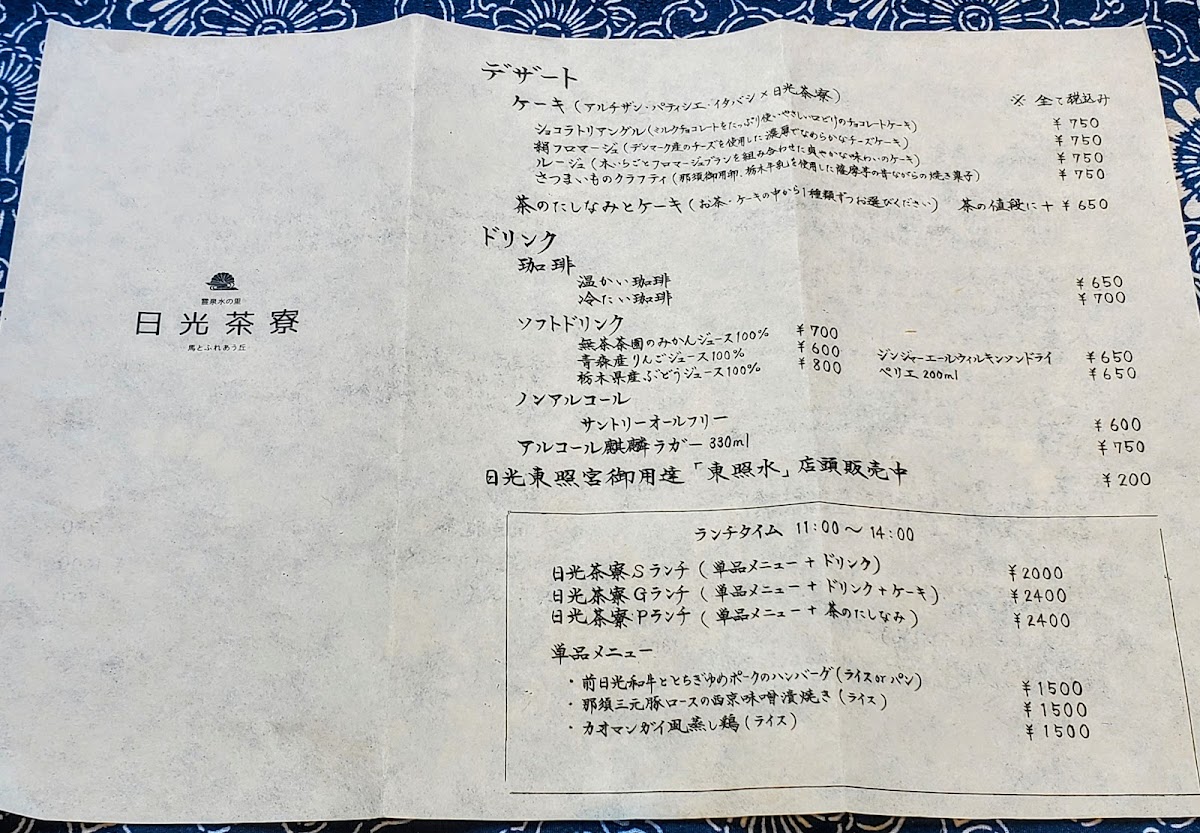 霊泉水の里
日光茶寮
馬とふれあう丘
デザート
ケーキ(アルチザン・パティシエ・イタバシ×日光茶寮) ※全て税込み
ショコラトリアングル(ミルクチョコレートをたっぷり使いやさしい口どりのチョコレートケーキ) ¥750
絹フロマージュ(デンマーク産のチーズを使用した濃厚でなめらかなチーズケーキ) ¥750
ルージュ(木いちごとフロマージュブランを組み合わせた爽やかな味わいのケーキ) ¥750
さつまいものクラフティ(那須御用卵、栃木牛乳を使用した薩摩芋の昔ながらの焼き菓子) ¥750
茶のたしなみとケーキ(お茶・ケーキの中から1種類ずつお選びください) 茶の値段に+¥650
ドリンク
珈琲
温かい珈琲 ¥650
冷たい珈琲 ¥700
ソフトドリンク
無茶茶園のみかんジュース100% ¥700
青森産りんごジュース100% ¥600 ジンジャーエールウィルキンソンドライ ¥650
栃木県産ぶどうジュース100% ¥800 ペリエ200ml ¥650
ノンアルコール
サントリーオールフリー ¥600
アルコール麒麟ラガー330ml ¥750
日光東照宮御用達「東照水」店頭販売中 ¥200
ランチタイム 11:00~14:00
日光茶寮Sランチ(単品メニュー+ドリンク) ¥2000
日光茶寮Gランチ(単品メニュー+ドリンク+ケーキ) ¥2400
日光茶寮Pランチ(単品メニュー+茶のたしなみ) ¥2400
単品メニュー
・前日光和牛ととちぎゆめポークのハンバーグ(ライスorパン) ¥1500
・那須三元豚ロースの西京味噌漬焼き(ライス) ¥1500
・カオマンガイ風蒸し鶏(ライス) ¥1500